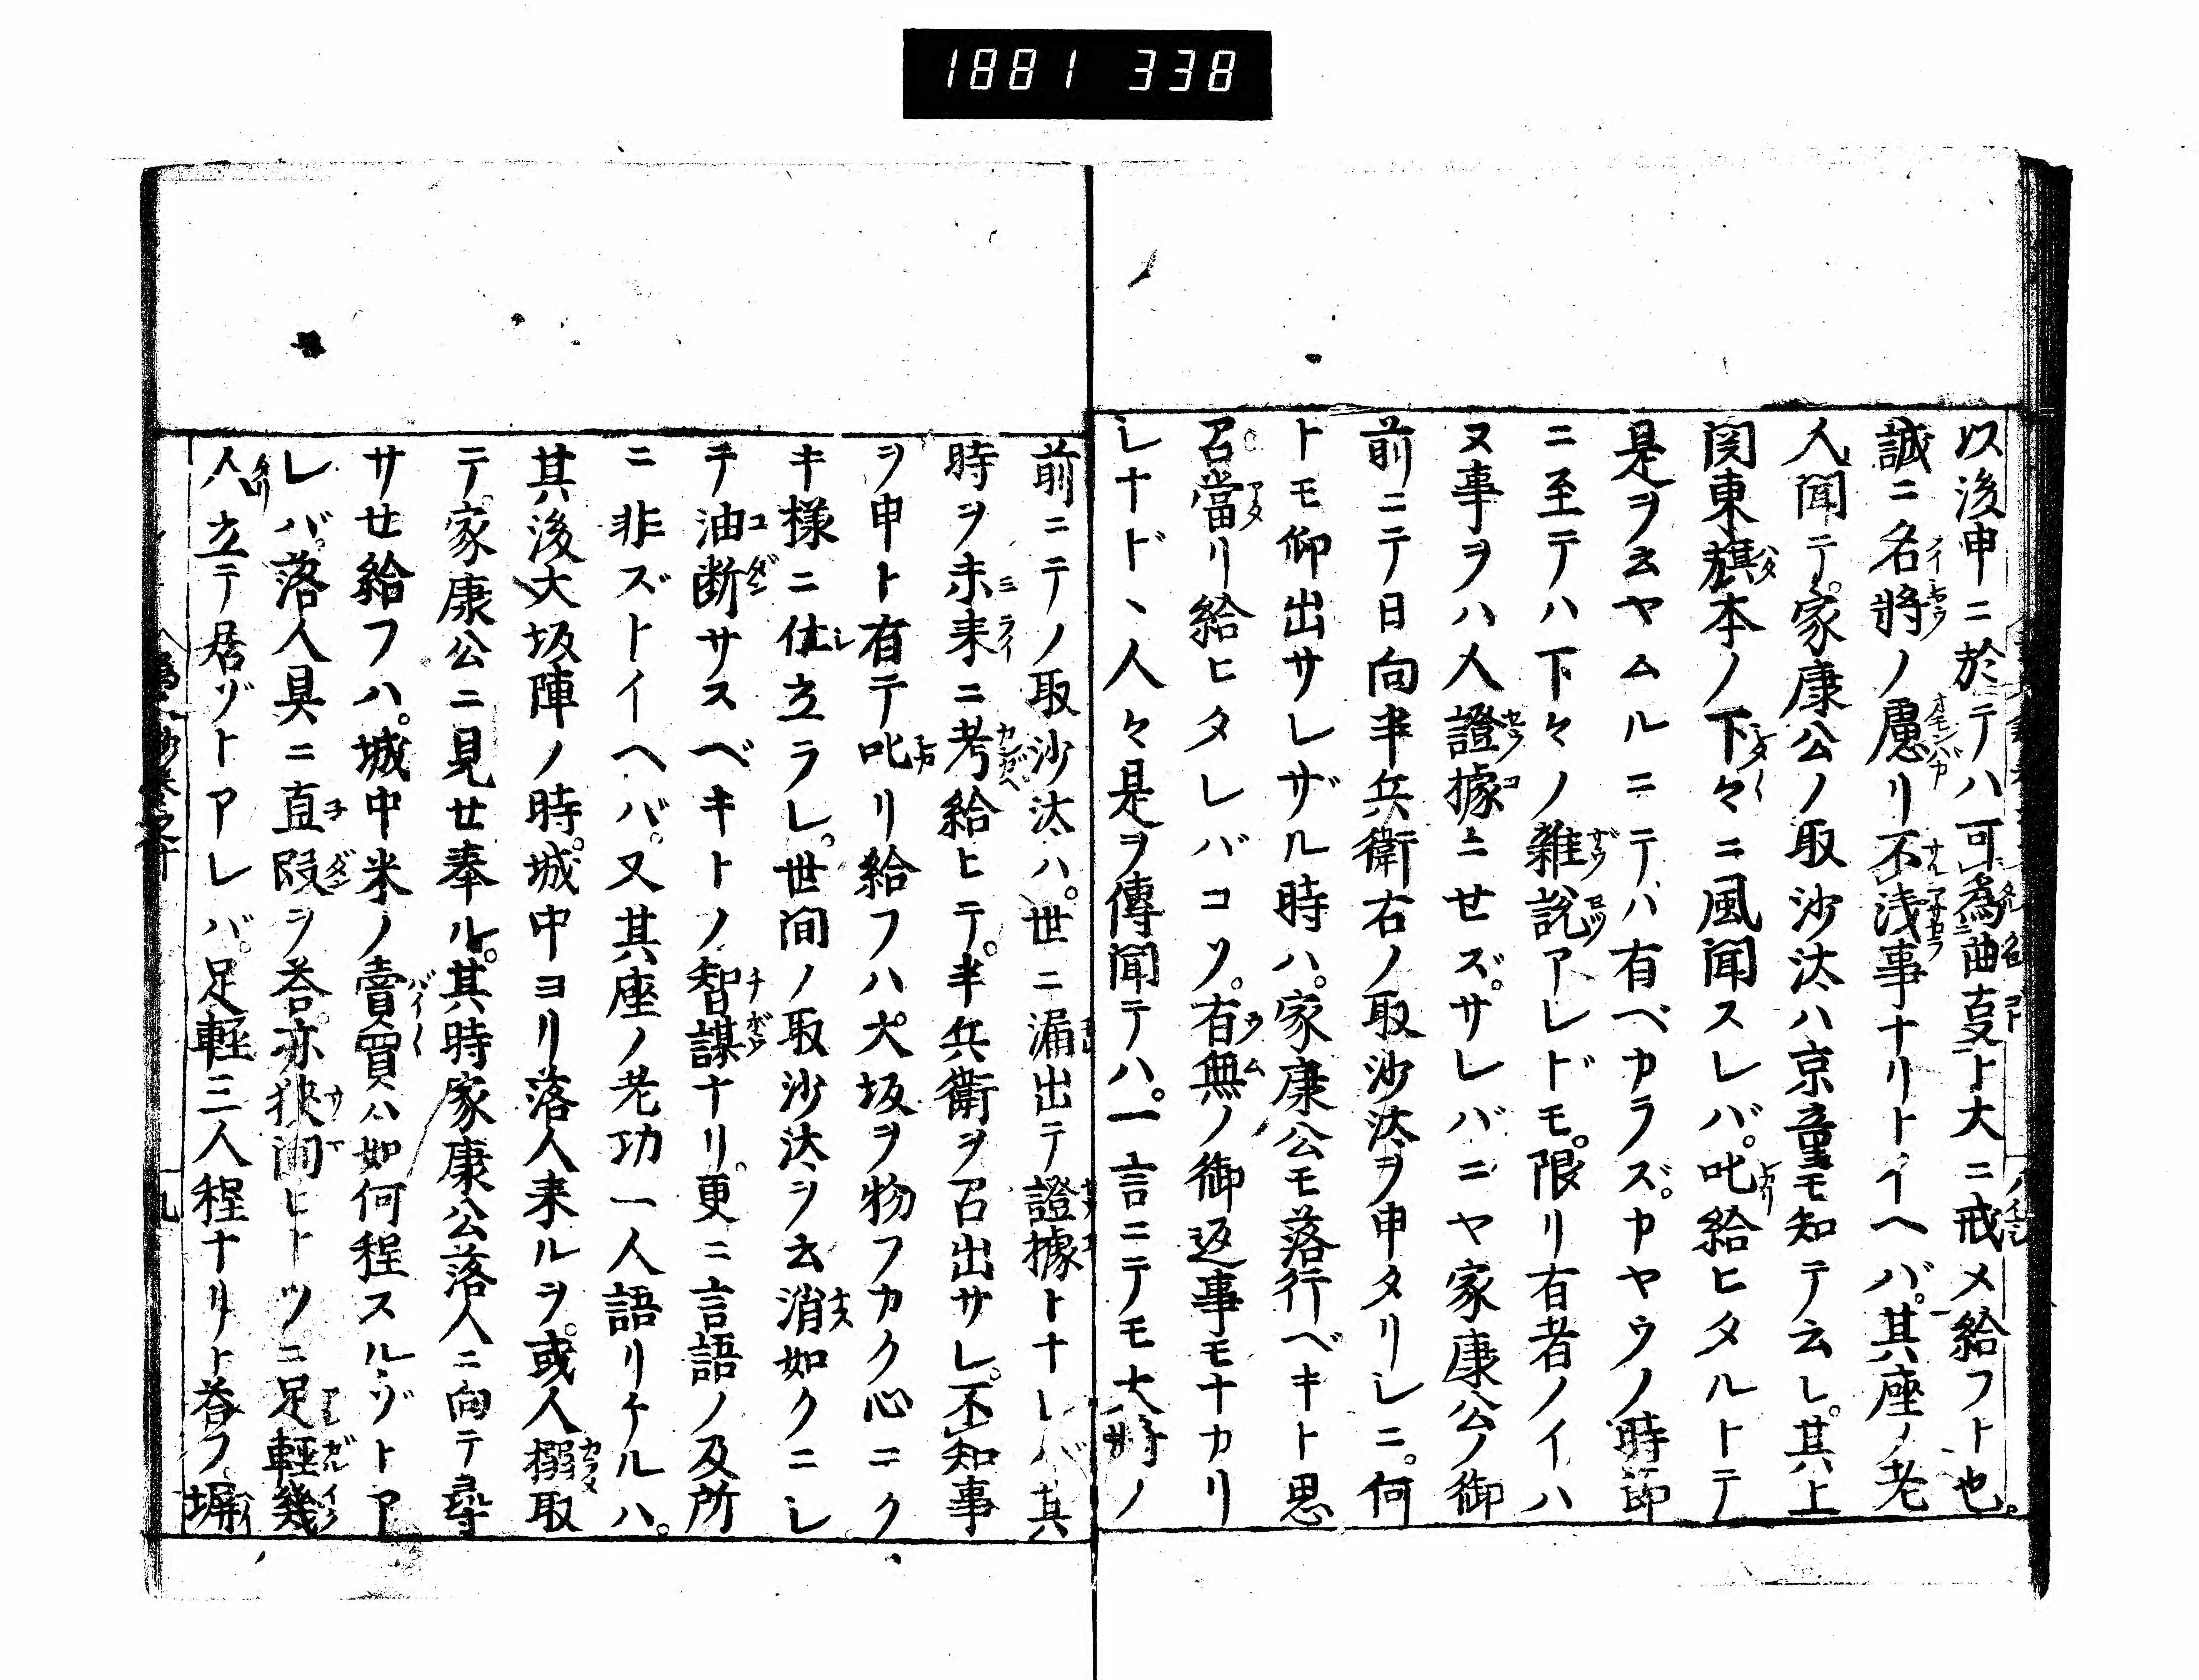 1881 338
以後申ニ於テハ可為曲叓ト大ニ戒メ給フト也。
誠ニ名将ノ慮リ不浅事ナリトイヘバ。其座ノ老
人聞テ。家康公ノ取沙汰ハ京童モ知テ云レ。其上
関東旗本ノ下々ニ風聞スレバ。叱給ヒタルトテ
是ヲ云ヤムルニテバ有ベカラズ。カヤウノ時節
ニ至テハ下々ノ雑説アレドモ。限リ有者ノイハ
ヌ事ヲハ人證據ニセズ。サレバニヤ家康公ノ御
前ニテ日向半兵衛右ノ取沙汰ヲ申タリシニ。何
トモ仰出サレザル時ハ。家康公モ落行ベキト思
召當リ給ヒタレバコソ。有無ノ御返事モナカリ
シナド、人々是ヲ傳聞テハ。一言ニテモ大将ノ
前ニテノ取沙汰ハ。世ニ漏出テ證據トナレバ其
時ヲ未来ニ考給ヒテ。半兵衛ヲ召出サレ。不知事
ヲ申ト有テ叱リ給フハ大坂ヲ物フカク心ニク
キ様ニ仕立ラレ。世間ノ取沙汰ヲ云消如クニシ
テ油断サスベキトノ智謀ナリ。更ニ言語ノ及所
ニ非ズトイヘバ。又其座ノ老功一人語リケルハ。
其後大坂陣ノ時。城中ヨリ落人来ルヲ。或人搦取
テ。家康公ニ見せ奉ル。其時家康公落人ニ向テ尋
サせ給フハ。城中米ノ賣買ハ如何程スルゾトア
レバ。落人具ニ直段ヲ荅。亦狭間ヒトツニ足軽幾
人立テ居ゾトアレバ。足軽三人程ナリト荅フ。塀